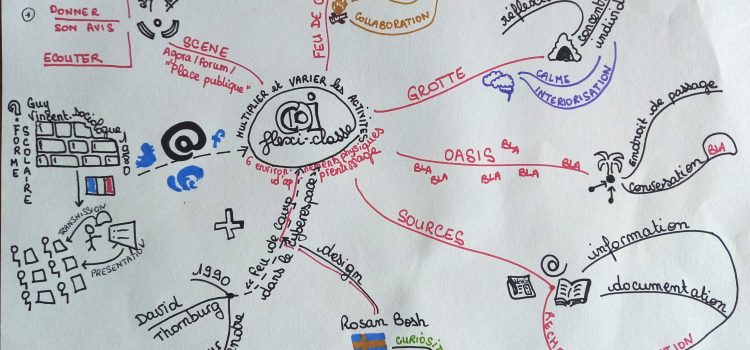 DONNER
SON AVIS
ECOUTER
SCENE
Agora/Forum/
"Place publique"
FEU DE
COLLABORATION
GROTTE
CALME
INTERIORISATION
réflexion
MULTIPLIER et VARIER les ACTIVITÉS
flexi-classe
6 environ
physiques
OASIS
BLA
BLA
BLA
BLA
BLA
BLA
endroit de passage
conversation
BLA
SOURCES
@
information
documentation
Guy
Vincent-sociologue
FORME
SCOLAIRE
@
TRANSMISSION
PRESENTATION
1990
David
Thornburg
"feu de camp
dans le cyberespace"
design
Rosan Bosh